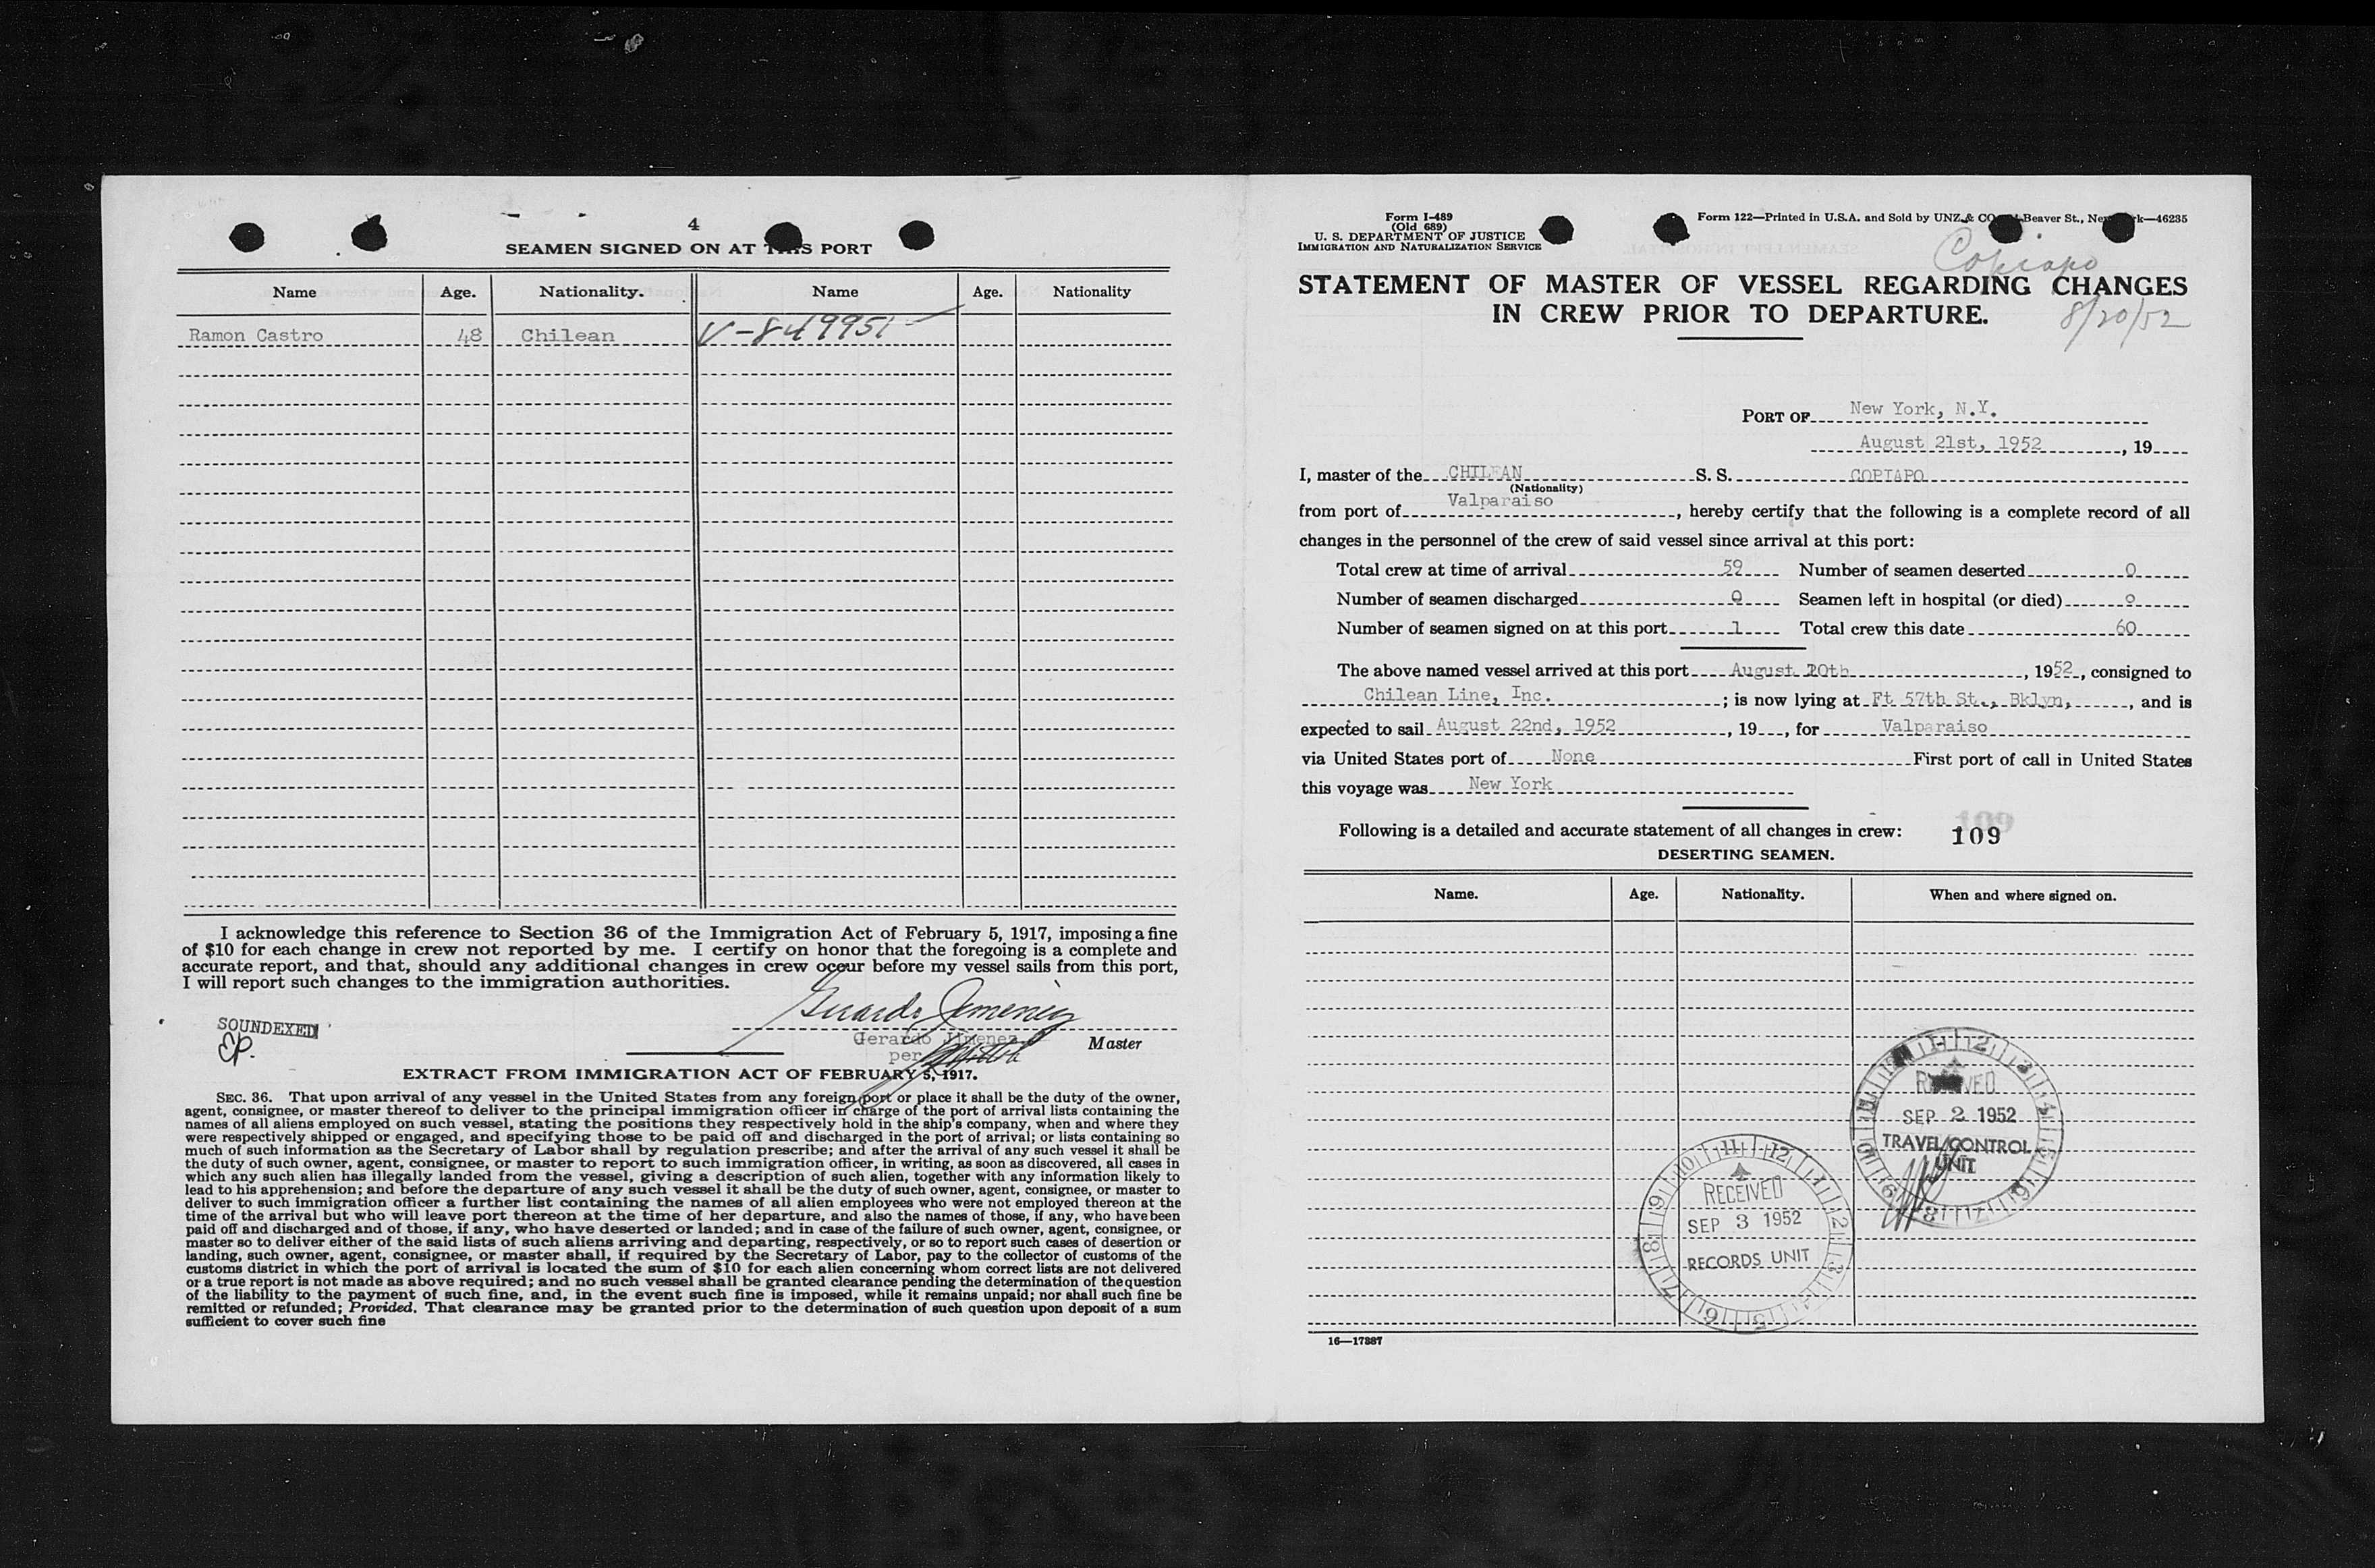 4
SEAMEN SIGNED ON AT THIS PORT
Name Age. Nationality. Name Age. Nationality
Ramon Castro 48 Chilean V-849951
I acknowledge this reference to Section 36 of the Immigration Act of February 5, 1917, imposing a fine
of $10 for each change in crew not reported by me. I certify on honor that the foregoing is a complete and
accurate report, and that, should any additional changes in crew occur before my vessel sails from this port,
I will report such changes to the immigration authorities.
Gerardo Jimenez
SOUNDEXED
EP.
Gerardo Jimenez Master
per
EXTRACT FROM IMMIGRATION ACT OF FEBRUARY 5, 1917.
SEC. 36. That upon arrival of any vessel in the United States from any foreign port or place it shall be the duty of the owner,
agent, consignee, or master thereof to deliver to the principal immigration officer in charge of the port of arrival lists containing the
names of all aliens employed on such vessel, stating the positions they respectively hold in the ship's company, when and where they
were respectively shipped or engaged, and specifying those to be paid off and discharged in the port of arrival; or lists containing so
much of such information as the Secretary of Labor shall by regulation prescribe; and after the arrival of any such vessel it shall be
the duty of such owner, agent, consignee, or master to report to such immigration officer, in writing, as soon as discovered, all cases in
which any such alien has illegally landed from the vessel, giving a description of such alien, together with any information likely to
lead to his apprehension; and before the departure of any such vessel it shall be the duty of such owner, agent, consignee, or master to
deliver to such immigration officer a further list containing the names of all alien employees who were not employed thereon at the
time of the arrival but who will leave port thereon at the time of her departure, and also the names of those, if any, who have been
paid off and discharged and of those, if any, who have deserted or landed; and in case of the failure of such owner, agent, consignee, or
master so to deliver either of the said lists of such aliens arriving and departing, respectively, or so to report such cases of desertion or
landing, such owner, agent, consignee, or master shall, if required by the Secretary of Labor, pay to the collector of customs of the
customs district in which the port of arrival is located the sum of $10 for each alien concerning whom correct lists are not delivered
or a true report is not made as above required; and no such vessel shall be granted clearance pending the determination of the question
of the liability to the payment of such fine, and, in the event such fine is imposed, while it remains unpaid; nor shall such fine be
remitted or refunded; Provided. That clearance may be granted prior to the determination of such question upon deposit of a sum
sufficient to cover such fine
Form I-489
(Old 689)
U. S. DEPARTMENT OF JUSTICE
IMMIGRATION AND NATURALIZATION SERVICE
Form 122—Printed in U.S.A. and Sold by UNZ & CO. Beaver St., New York—46235
Copiapo
STATEMENT OF MASTER OF VESSEL REGARDING CHANGES
IN CREW PRIOR TO DEPARTURE.
8/20/52
PORT OF New York, N.Y.
August 21st, 1952, 19
I, master of the CHILEAN S. S. COPIAPO
(Nationality)
from port of Valparaiso, hereby certify that the following is a complete record of all
changes in the personnel of the crew of said vessel since arrival at this port:
Total crew at time of arrival 59 Number of seamen deserted 0
Number of seamen discharged 0 Seamen left in hospital (or died) 0
Number of seamen signed on at this port 1 Total crew this date 60
The above named vessel arrived at this port August 20th, 1952, consigned to
Chilean Line, Inc.; is now lying at Ft 57th St., Bklyn, and is
expected to sail August 22nd, 1952, 19, for Valparaiso
via United States port of None First port of call in United States
this voyage was New York
Following is a detailed and accurate statement of all changes in crew: 109
DESERTING SEAMEN.
Name. Age. Nationality. When and where signed on.
RECEIVED
SEP 2 1952
TRAVEL CONTROL
UNIT
RECEIVED
SEP 3 1952
RECORDS UNIT
16—17387